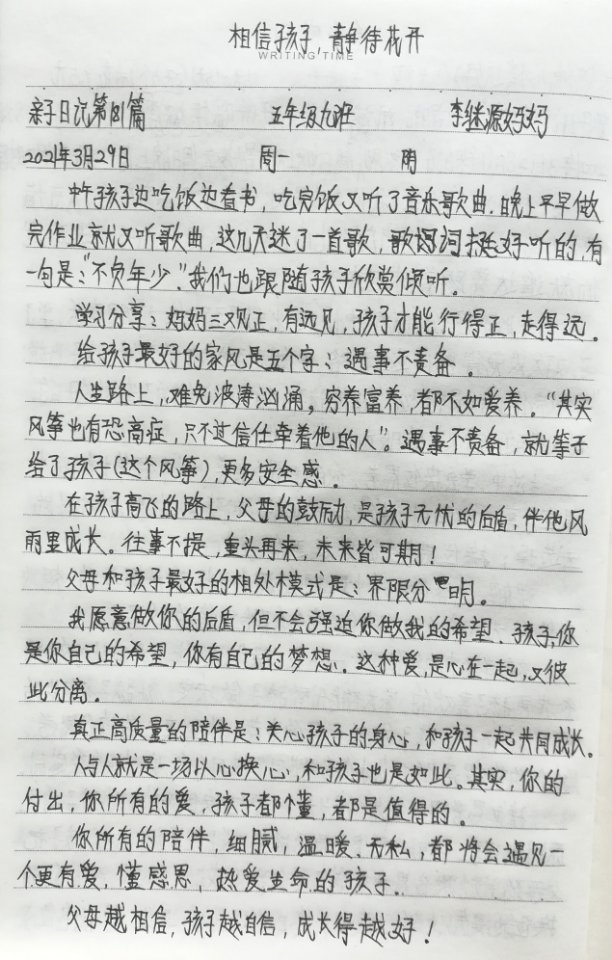 相信孩子，静待花开
WRITING TIME
亲子日记第181篇 五年级九班 李继源妈妈
2021年3月29日 周一 阴
中午孩子边吃饭边看书，吃完饭又听了音乐歌曲.晚上早早做
完作业就又听歌曲，这几天迷了一首歌，歌词挺好听的，有
一句是：“不负年少”.我们也跟随孩子欣赏倾听.
学习分享：妈妈三观正，有远见，孩子才能行得正，走得远.
给孩子最好的家风是五个字：遇事不责备.
人生路上，难免波涛汹涌。穷养富养，都不如爱养。“其实
风筝也有恐高症，只不过信任牵着他的人”。遇事不责备，就等于
给了孩子(这个风筝),更多安全感.
在孩子高飞的路上，父母的鼓励，是孩子无忧的后盾，伴他风
雨里成长。往事不提，重头再来，未来皆可期！
父母和孩子最好的相处模式是：界限分明。
我愿意做你的后盾，但不会强迫你做我的希望.孩子，你
是你自己的希望，你有自己的梦想.这种爱，是心在一起，又彼
此分离.
真正高质量的陪伴是：关心孩子的身心，和孩子一起共同成长.
人与人就是一场以心换心，和孩子也是如此。其实，你的
付出，你所有的爱，孩子都懂，都是值得的.
你所有的陪伴，细腻，温暖.无私，都将会遇见一
个更有爱，懂感恩，热爱生命的孩子.
父母越相信，孩子越自信，成长得越好！